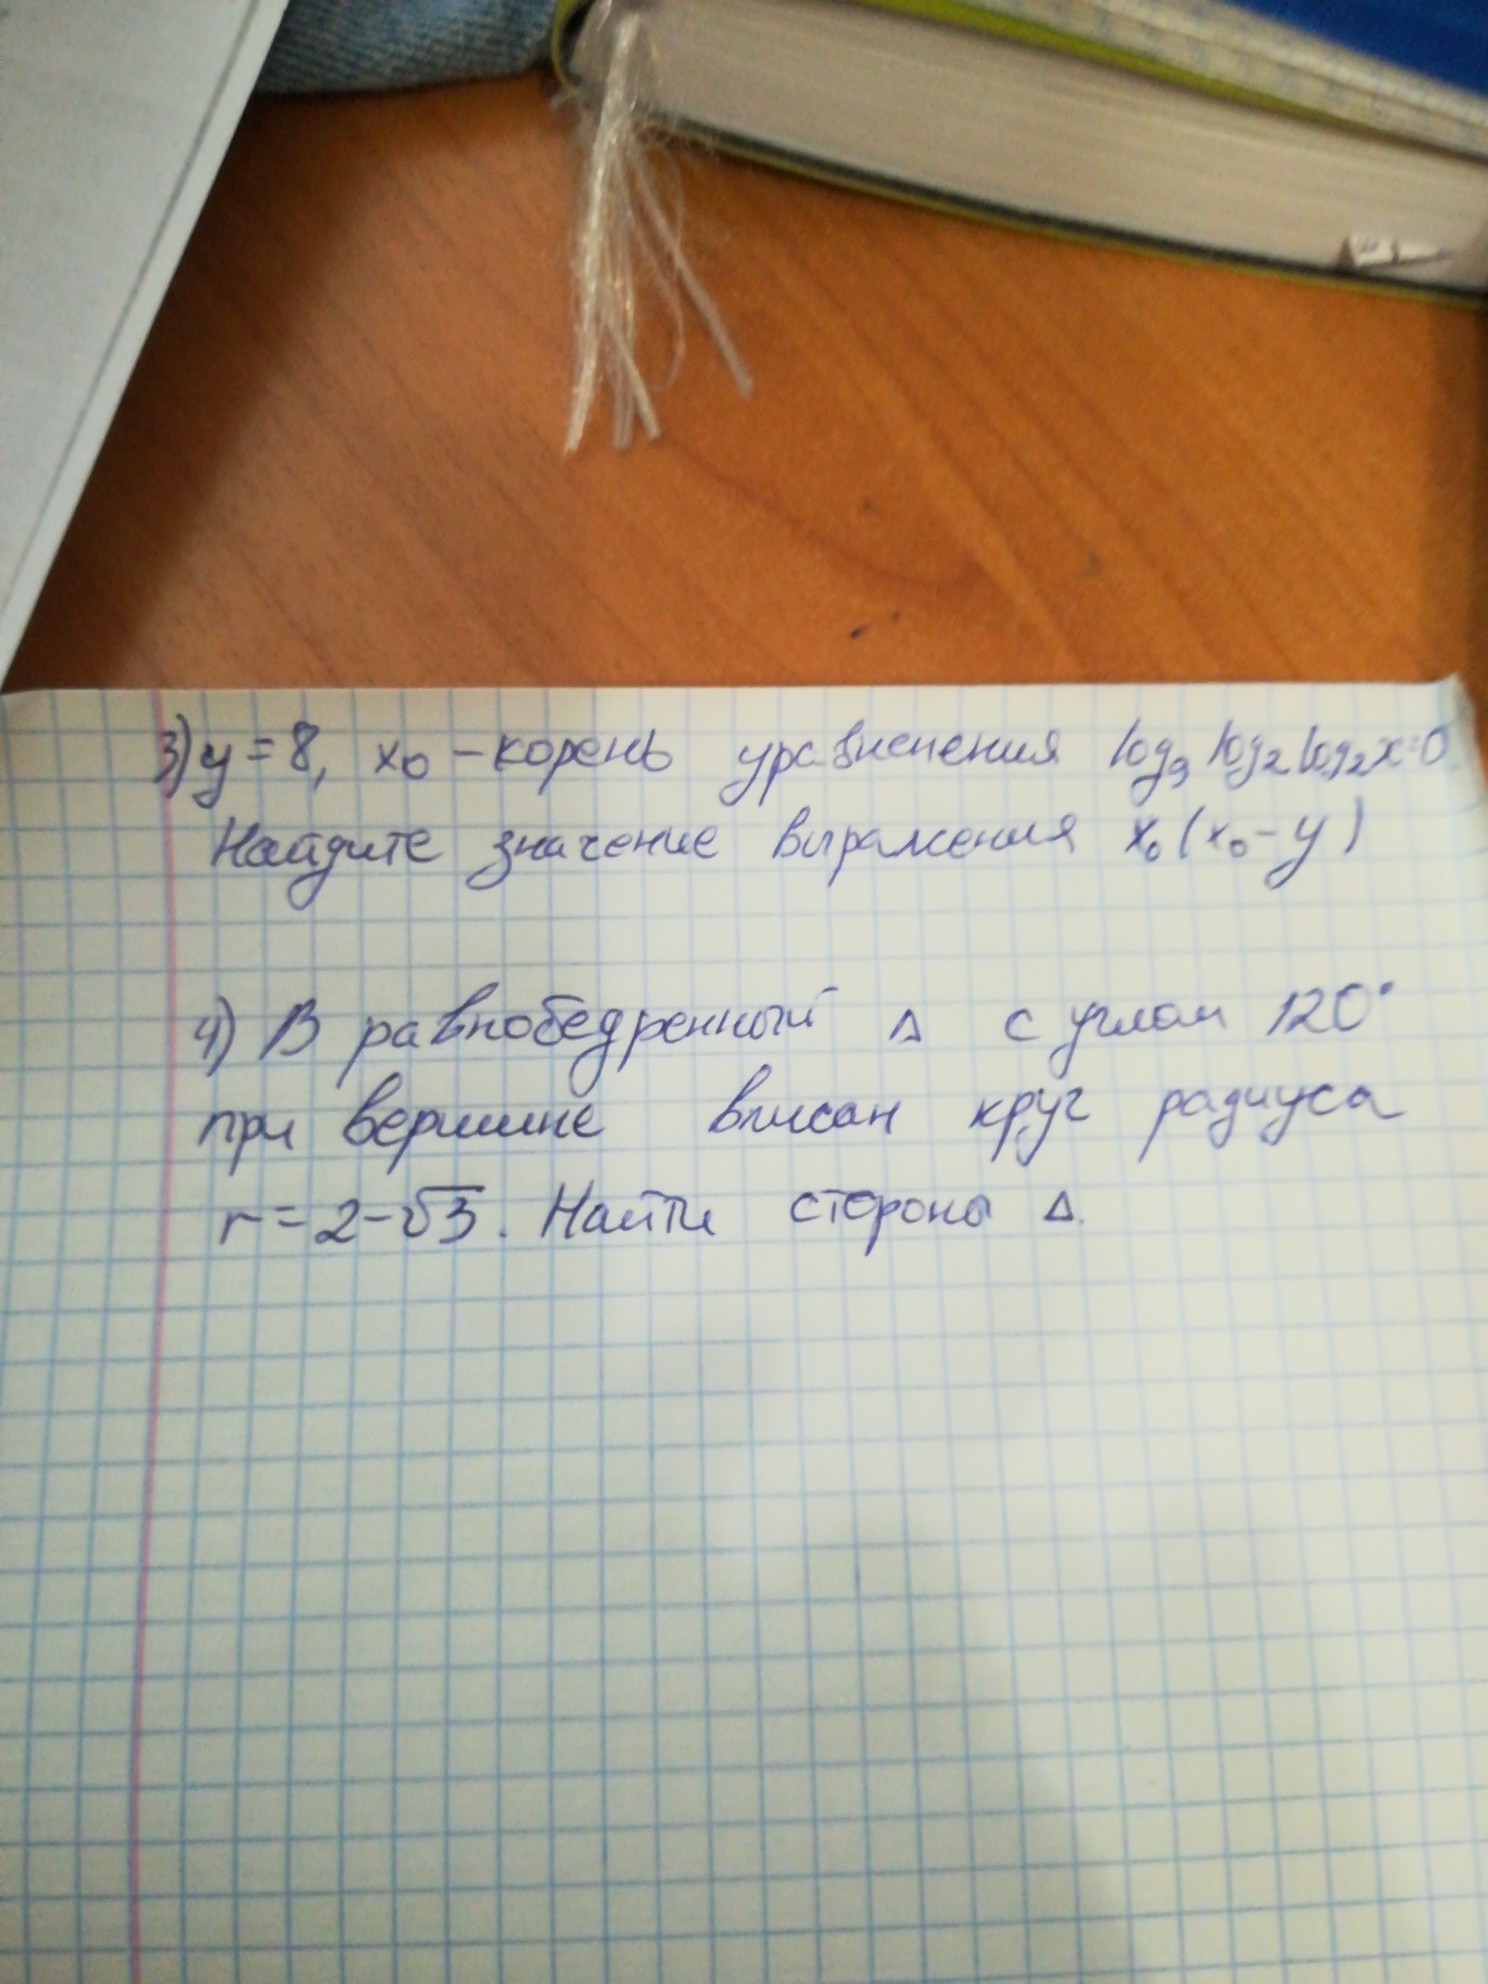 3) y = 8, x₀ - корень уравнения log₉ log₂ log₂ x = 0
Найдите значение выражения x₀ (x₀ - y)
4) В равнобедренный Δ с углом 120°
при вершине вписан круг радиуса
r = 2 - √3. Найти стороны Δ.